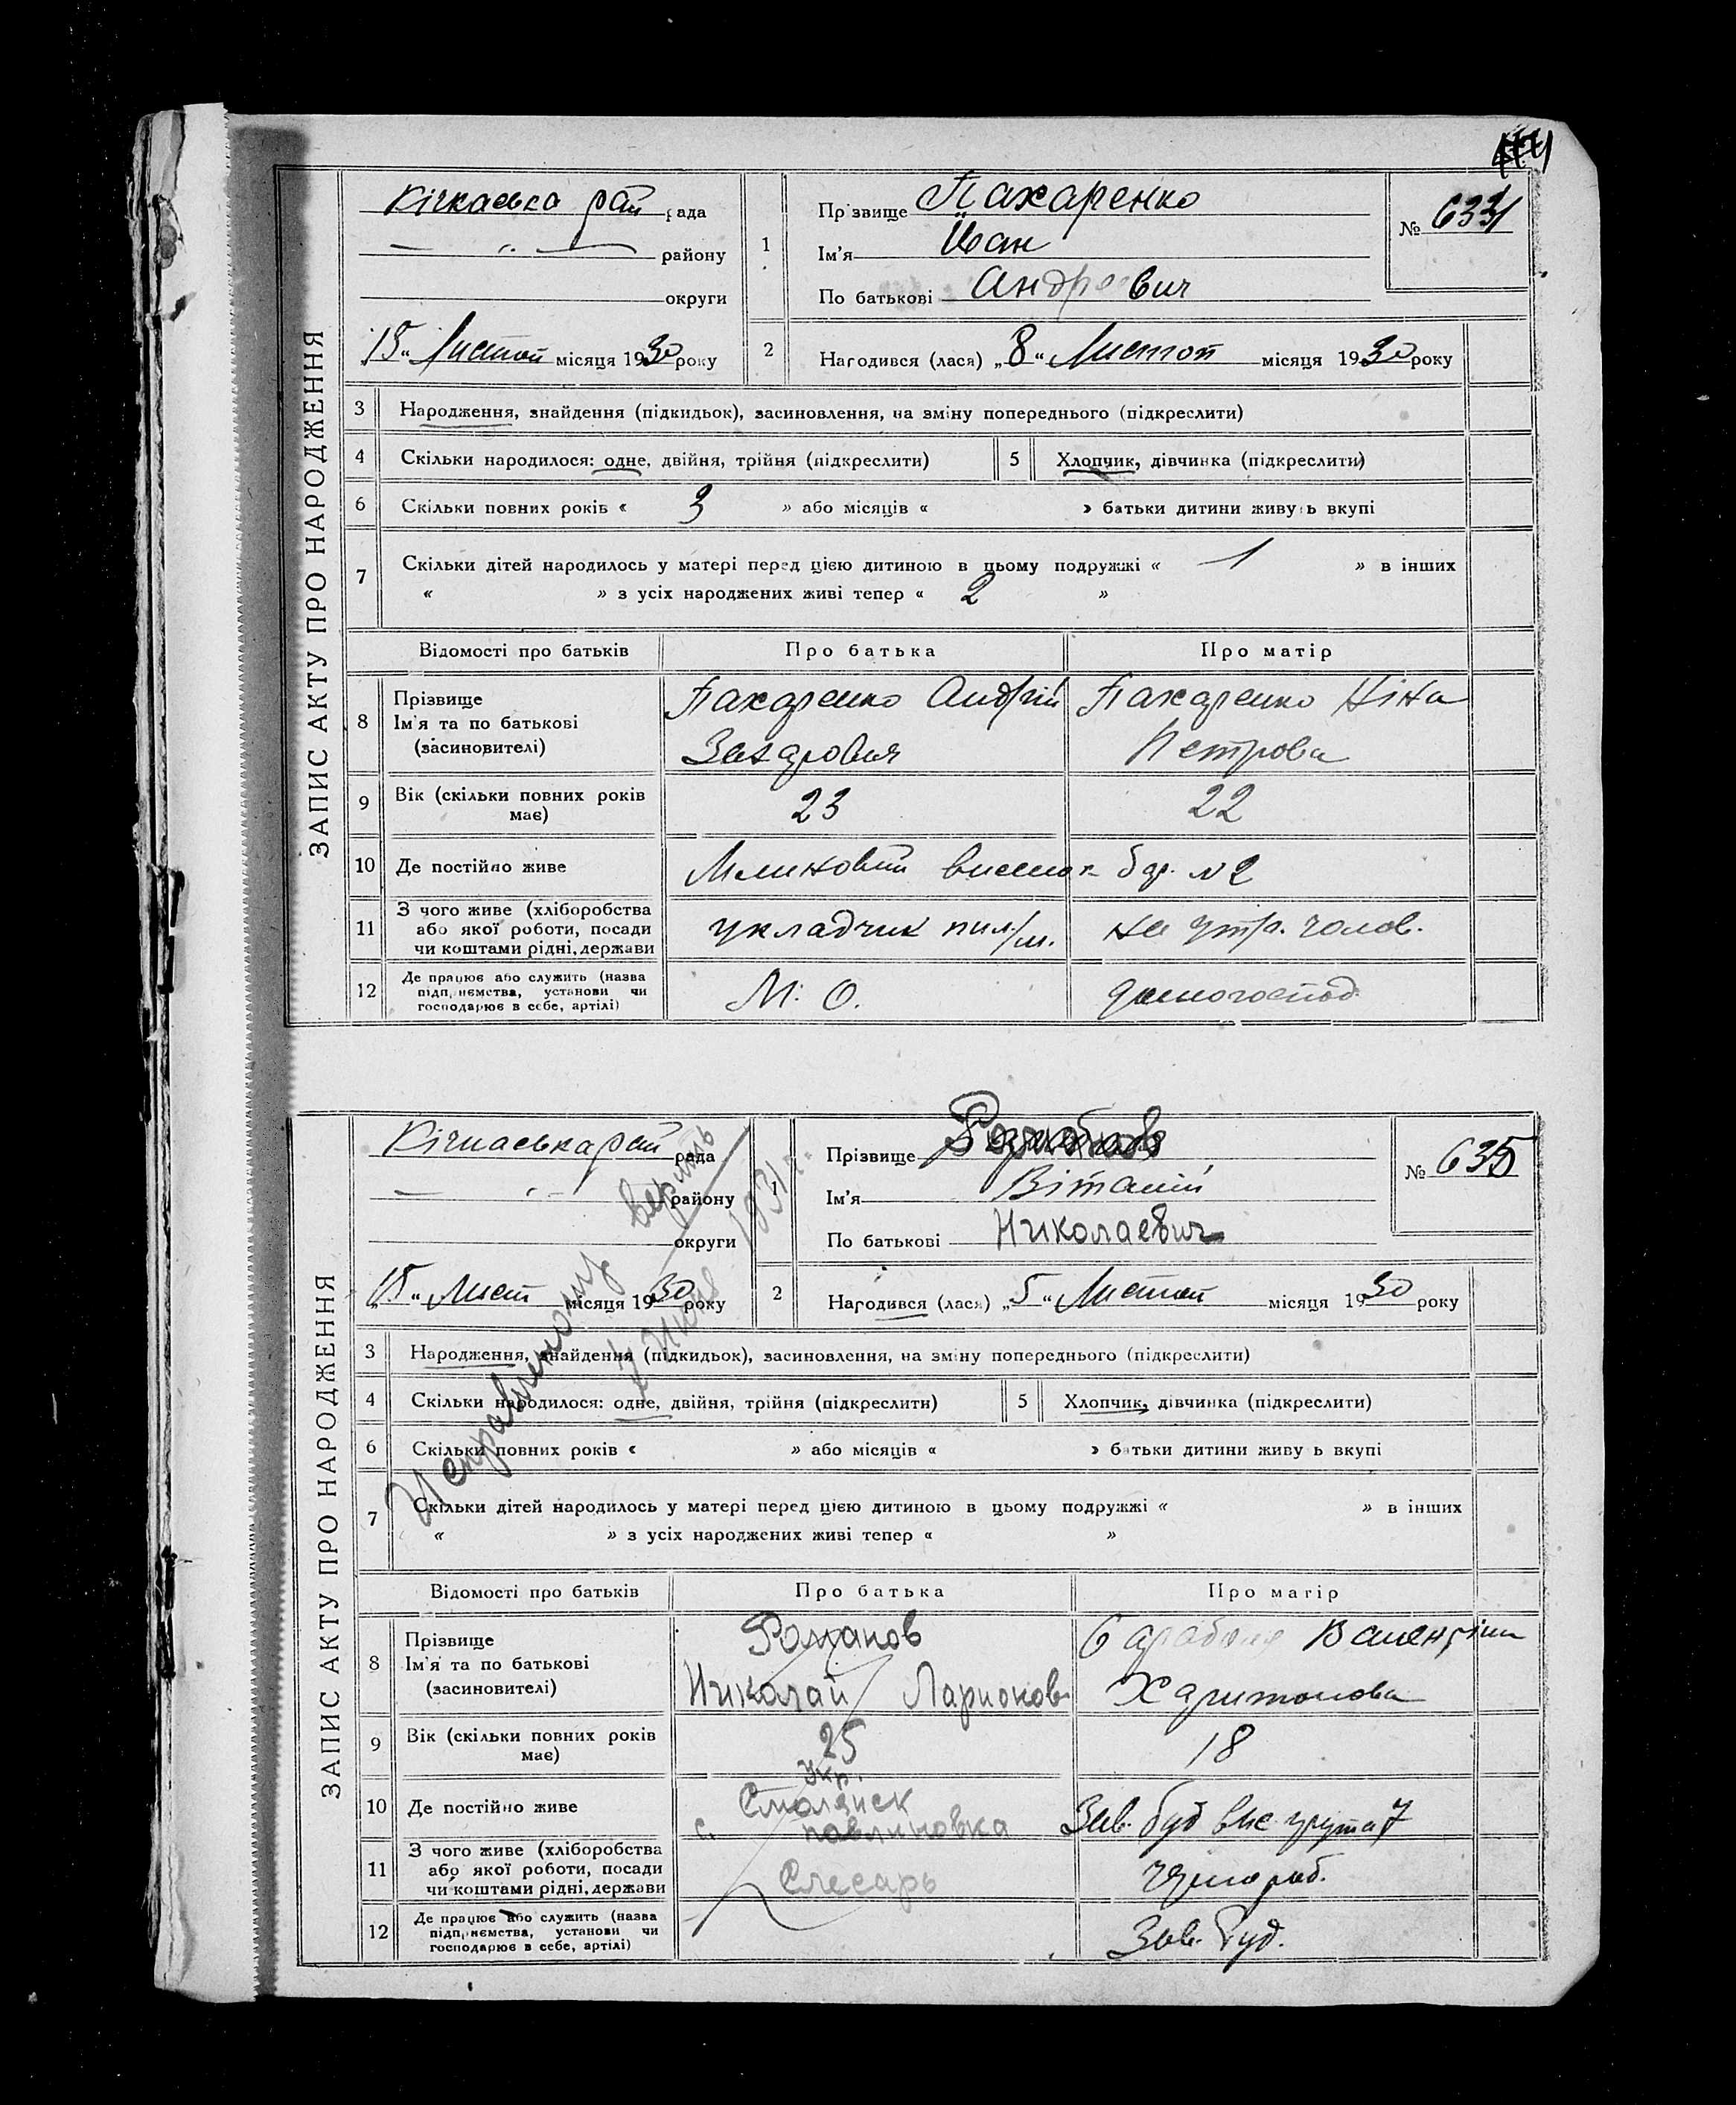 ЗАПИС АКТУ ПРО НАРОДЖЕННЯ
Кічкаська рай рада
району
округи
15 " Листоп місяця 1930 року
1
Прізвище Пахаренко
Ім'я Іван
По батькові Андреевич
№ 634
2 Народився (лася) „ 8 " Листоп місяця 1930 року
3 Народження, знайдення (підкидьок), засиновлення, на зміну попереднього (підкреслити)
4 Скільки народилося: одне, двійня, трійня (підкреслити) 5 Хлопчик, дівчинка (підкреслити)
6 Скільки повних років « 3 » або місяців « » батьки дитини живуть вкупі
7 Скільки дітей народилось у матері перед цією дитиною в цьому подружжі « 1 » в інших
« » з усіх народжених живі тепер « 2 »
Відомості про батьків Про батька Про матір
8 Прізвище
Ім'я та по батькові
(засиновителі)
Пахаренко Андрій
Захарович
Пахаренко Ніна
Петрова
9 Вік (скільки повних років має) 23 22
10 Де постійно живе Млиновий бар. № 2
11 З чого живе (хліборобства
або якої роботи, посади
чи коштами рідні, держави
укладчик пил/м.
на утр. чолов.
12 Де працює або служить (назва
підприємства, установи чи
господарює в себе, артілі)
М. О.
домогоспод.
ЗАПИС АКТУ ПРО НАРОДЖЕННЯ
Кічкаська рай рада
району
округи
15 " Лист місяця 1930 року
Исправленому верить
1931 г.
1
Прізвище
Ім'я Віталій
По батькові Николаевич
№ 635
2 Народився (лася) „ 5 " Листоп місяця 1930 року
3 Народження, знайдення (підкидьок), засиновлення, на зміну попереднього (підкреслити)
4 Скільки народилося: одне, двійня, трійня (підкреслити) 5 Хлопчик, дівчинка (підкреслити)
6 Скільки повних років « » або місяців « » батьки дитини живуть вкупі
7 Скільки дітей народилось у матері перед цією дитиною в цьому подружжі « » в інших
« » з усіх народжених живі тепер « »
Відомості про батьків Про батька Про матір
8 Прізвище
Ім'я та по батькові
(засиновителі)
Романов
Николай Ларионов
Валентіна
Харитонова
9 Вік (скільки повних років має) 25 18
укр.
10 Де постійно живе
Смолянск
с. Павлиновка
11 З чого живе (хліборобства
або якої роботи, посади
чи коштами рідні, держави
Слесарь
чорнороб.
12 Де працює або служить (назва
підприємства, установи чи
господарює в себе, артілі)
Зав. Буд.